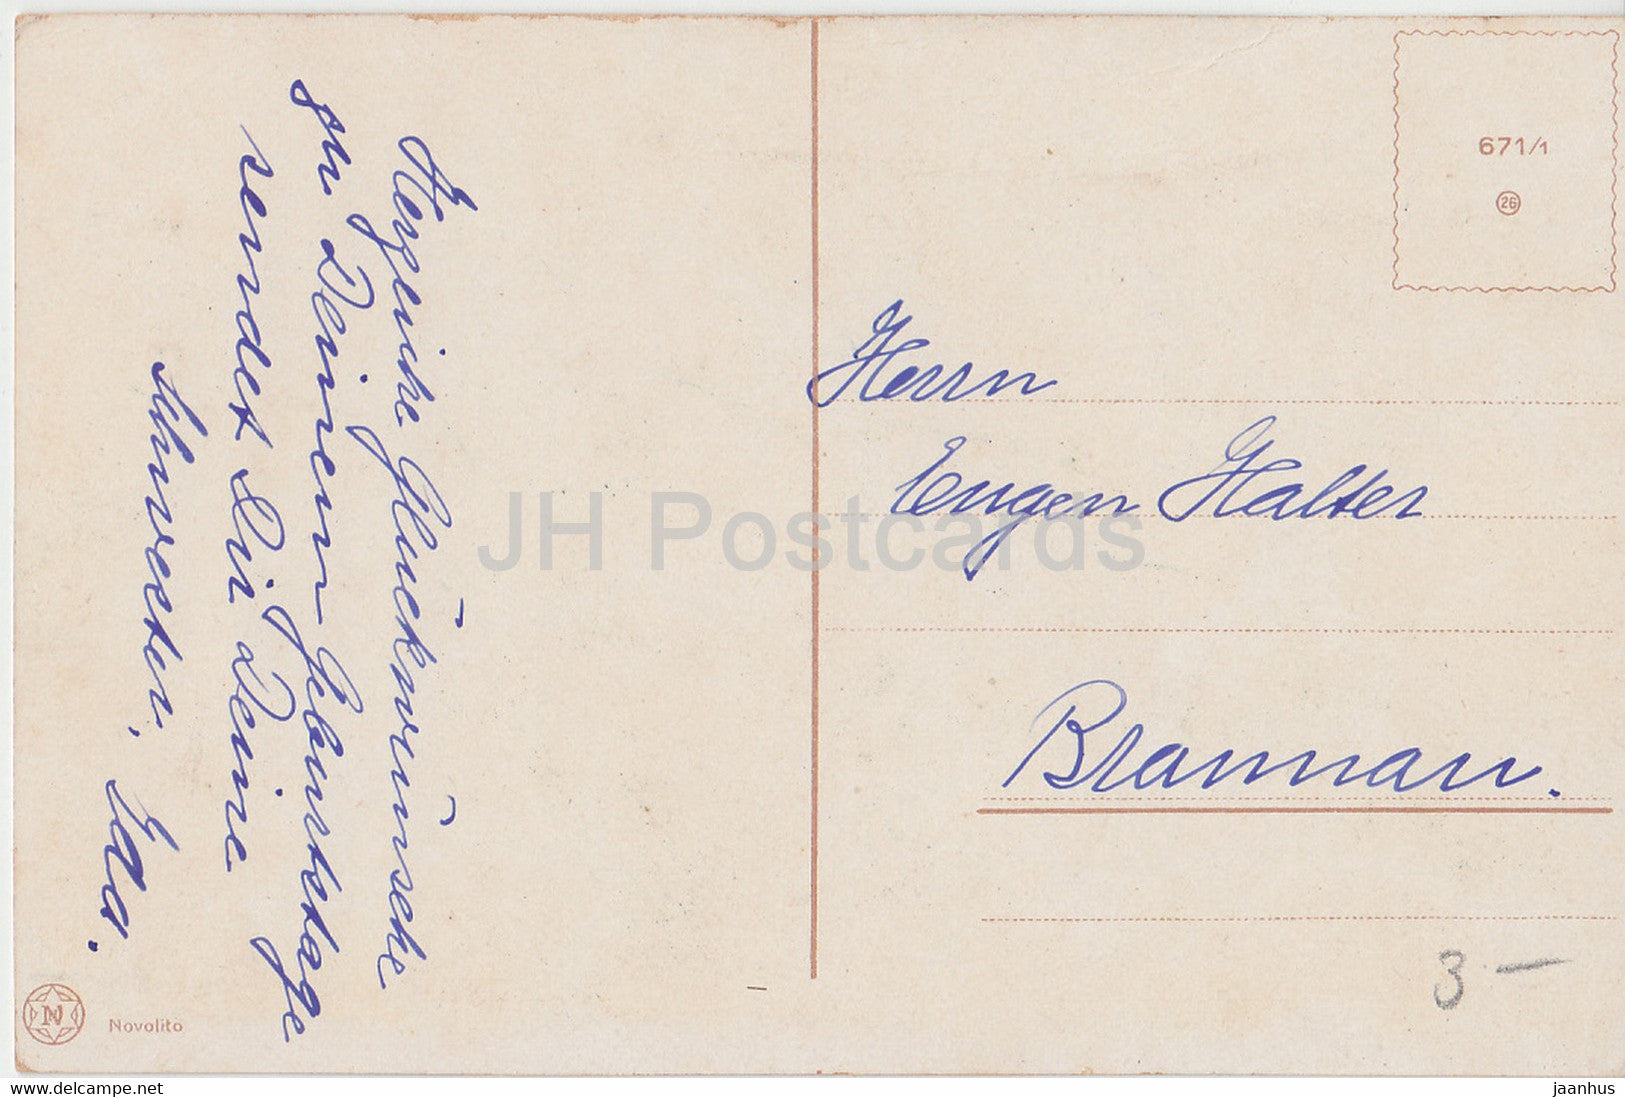 Herzliche Glückwünsche
zu Deinem Geburtstage
sendet Dir Deine
Schwester, Ida.
Herrn
Eugen Halter
Braunau.
671/1
26
3 —
N
Novolito
JH Postcards
www.delcampe.net
jaanhus